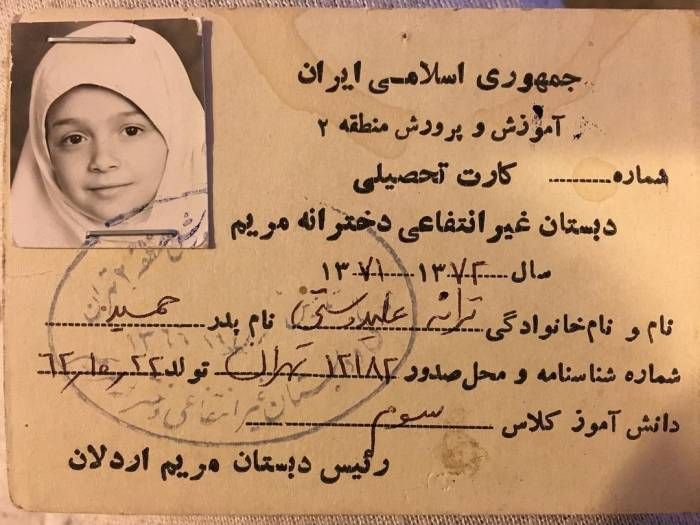 جمهوری اسلامی ایران
آموزش و پرورش منطقه ۲
شماره .......... کارت تحصیلی
دبستان غیر انتفاعی دخترانه مریم
سال ۱۳۷۲ ۱۳۷۱
نام و نام‌خانوادگی ترانه علیدوستی نام پدر حمید
شماره شناسنامه و محل صدور ۱۲۱۸۲ تهران تولد ۶۲
دانش آموز کلاس سوم
رئیس دبستان مریم اردلان